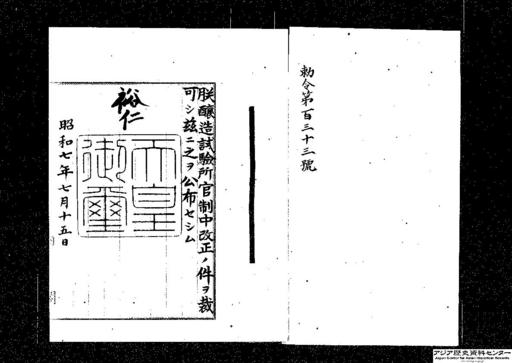 勅令第百三十三號
朕釀造試驗所官制中改正ノ件ヲ裁
可シ玆ニ之ヲ公布セシム
裕仁
天皇
御璽
昭和七年七月十五日
アジア歴史資料センター
Japan Center for Asian Historical Records